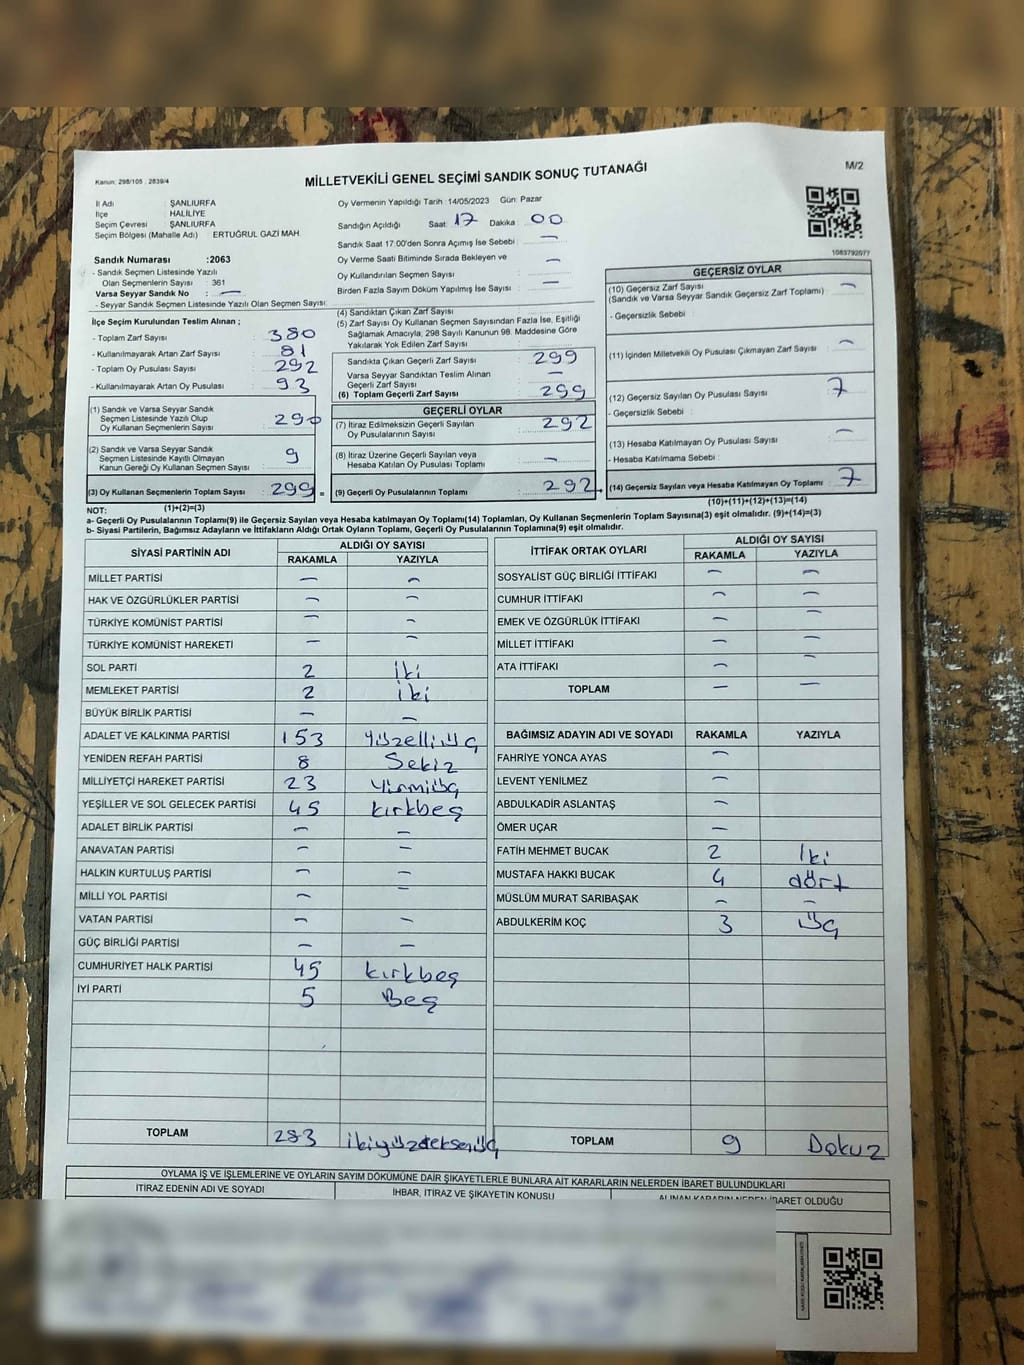 M/2
Kanun: 298/105 , 2839/4
MİLLETVEKİLİ GENEL SEÇİMİ SANDIK SONUÇ TUTANAĞI
İl Adı : ŞANLIURFA
İlçe : HALİLİYE
Seçim Çevresi : ŞANLIURFA
Seçim Bölgesi (Mahalle Adı) : ERTUĞRUL GAZİ MAH.
Sandık Numarası :2063
- Sandık Seçmen Listesinde Yazılı
Olan Seçmenlerin Sayısı : 361
Varsa Seyyar Sandık No : —
- Seyyar Sandık Seçmen Listesinde Yazılı Olan Seçmen Sayısı:
Oy Vermenin Yapıldığı Tarih :14/05/2023 Gün: Pazar
Sandığın Açıldığı Saat: 17 Dakika : 00
Sandık Saat 17:00'den Sonra Açılmış İse Sebebi : —
Oy Verme Saati Bitiminde Sırada Bekleyen ve
Oy Kullandırılan Seçmen Sayısı : —
Birden Fazla Sayım Döküm Yapılmış İse Sayısı : —
1083792077
İlçe Seçim Kurulundan Teslim Alınan ;
- Toplam Zarf Sayısı : 380
- Kullanılmayarak Artan Zarf Sayısı : 81
- Toplam Oy Pusulası Sayısı : 292
- Kullanılmayarak Artan Oy Pusulası : 93
(1) Sandık ve Varsa Seyyar Sandık
Seçmen Listesinde Yazılı Olup
Oy Kullanan Seçmenlerin Sayısı : 290
(2) Sandık ve Varsa Seyyar Sandık
Seçmen Listesinde Kayıtlı Olmayan
Kanun Gereği Oy Kullanan Seçmen Sayısı : 9
(3) Oy Kullanan Seçmenlerin Toplam Sayısı : 299
(1)+(2)=(3)
(4) Sandıktan Çıkan Zarf Sayısı :
(5) Zarf Sayısı Oy Kullanan Seçmen Sayısından Fazla İse, Eşitliği
Sağlamak Amacıyla, 298 Sayılı Kanunun 98. Maddesine Göre
Yakılarak Yok Edilen Zarf Sayısı :
Sandıkta Çıkan Geçerli Zarf Sayısı : 299
Varsa Seyyar Sandıktan Teslim Alınan
Geçerli Zarf Sayısı : —
(6) Toplam Geçerli Zarf Sayısı : 299
GEÇERLİ OYLAR
(7) İtiraz Edilmeksizin Geçerli Sayılan
Oy Pusulalarının Sayısı : 292
(8) İtiraz Üzerine Geçerli Sayılan veya
Hesaba Katılan Oy Pusulası Toplamı : —
(9) Geçerli Oy Pusulalarının Toplamı : 292
GEÇERSİZ OYLAR
(10) Geçersiz Zarf Sayısı
(Sandık ve Varsa Seyyar Sandık Geçersiz Zarf Toplamı) : —
- Geçersizlik Sebebi :
(11) İçinden Milletvekili Oy Pusulası Çıkmayan Zarf Sayısı : —
(12) Geçersiz Sayılan Oy Pusulası Sayısı : 7
- Geçersizlik Sebebi :
(13) Hesaba Katılmayan Oy Pusulası Sayısı : —
- Hesaba Katılmama Sebebi :
(14) Geçersiz Sayılan veya Hesaba Katılmayan Oy Toplamı : 7
(10)+(11)+(12)+(13)=(14)
NOT:
a- Geçerli Oy Pusulasının Toplamı(9) ile Geçersiz Sayılan veya Hesaba katılmayan Oy Toplamı(14) Toplamları, Oy Kullanan Seçmenlerin Toplam Sayısına(3) eşit olmalıdır. (9)+(14)=(3)
b- Siyasi Partilerin, Bağımsız Adayların ve İttifakların Aldığı Ortak Oyların Toplamı, Geçerli Oy Pusulalarının Toplamına(9) eşit olmalıdır.
SİYASİ PARTİNİN ADI ALDIĞI OY SAYISI
RAKAMLA YAZIYLA
MİLLET PARTİSİ — —
HAK VE ÖZGÜRLÜKLER PARTİSİ — —
TÜRKİYE KOMÜNİST PARTİSİ — —
TÜRKİYE KOMÜNİST HAREKETİ — —
SOL PARTİ 2 iki
MEMLEKET PARTİSİ 2 iki
BÜYÜK BİRLİK PARTİSİ — —
ADALET VE KALKINMA PARTİSİ 153 Yüzelliüç
YENİDEN REFAH PARTİSİ 8 Sekiz
MİLLİYETÇİ HAREKET PARTİSİ 23 Yirmiüç
YEŞİLLER VE SOL GELECEK PARTİSİ 45 kırkbeş
ADALET BİRLİK PARTİSİ — —
ANAVATAN PARTİSİ — —
HALKIN KURTULUŞ PARTİSİ — —
MİLLİ YOL PARTİSİ — —
VATAN PARTİSİ — —
GÜÇ BİRLİĞİ PARTİSİ — —
CUMHURİYET HALK PARTİSİ 45 kırkbeş
İYİ PARTİ 5 Beş
TOPLAM 283 ikiyüzdeksenüç
İTTİFAK ORTAK OYLARI ALDIĞI OY SAYISI
RAKAMLA YAZIYLA
SOSYALİST GÜÇ BİRLİĞİ İTTİFAKI — —
CUMHUR İTTİFAKI — —
EMEK VE ÖZGÜRLÜK İTTİFAKI — —
MİLLET İTTİFAKI — —
ATA İTTİFAKI — —
TOPLAM — —
BAĞIMSIZ ADAYIN ADI VE SOYADI RAKAMLA YAZIYLA
FAHRİYE YONCA AYAS —
LEVENT YENİLMEZ —
ABDULKADİR ASLANTAŞ —
ÖMER UÇAR —
FATİH MEHMET BUCAK 2 İki
MUSTAFA HAKKI BUCAK 4 dört
MÜSLÜM MURAT SARIBAŞAK — —
ABDULKERİM KOÇ 3 üç
TOPLAM 9 Dokuz
OYLAMA İŞ VE İŞLEMLERİNE VE OYLARIN SAYIM DÖKÜMÜNE DAİR ŞİKAYETLERLE BUNLARA AİT KARARLARIN NELERDEN İBARET BULUNDUKLARI
İTİRAZ EDENİN ADI VE SOYADI İHBAR, İTİRAZ VE ŞİKAYETİN KONUSU ALINAN KARARIN NEDEN İBARET OLDUĞU